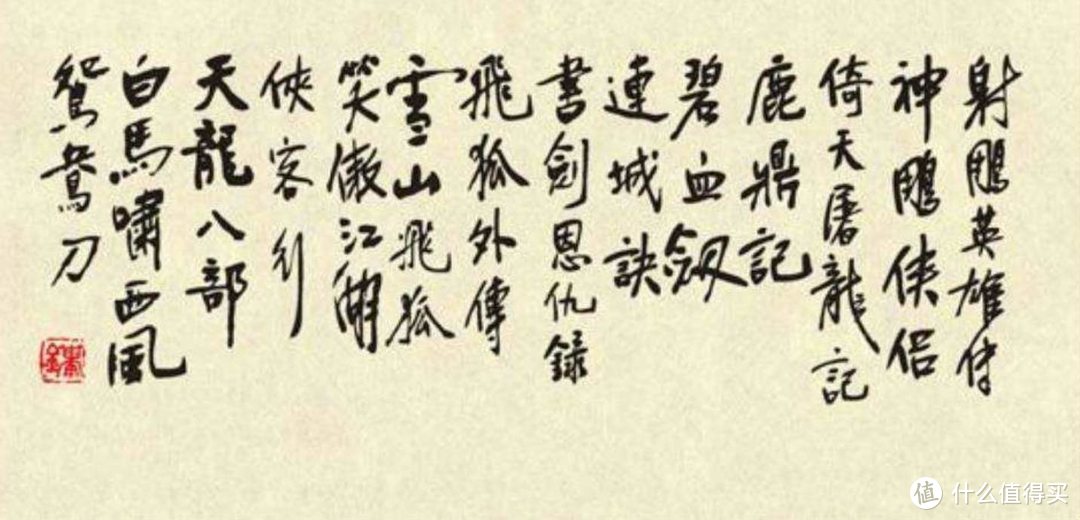 射鵰英雄传
神鵰侠侣
倚天屠龍記
鹿鼎記
碧血劔
連城訣
書劍恩仇錄
飛狐外傳
雪山飛狐
笑傲江湖
俠客行
天龍八部
白馬嘯西風
鴛鴦刀
值 什么值得买